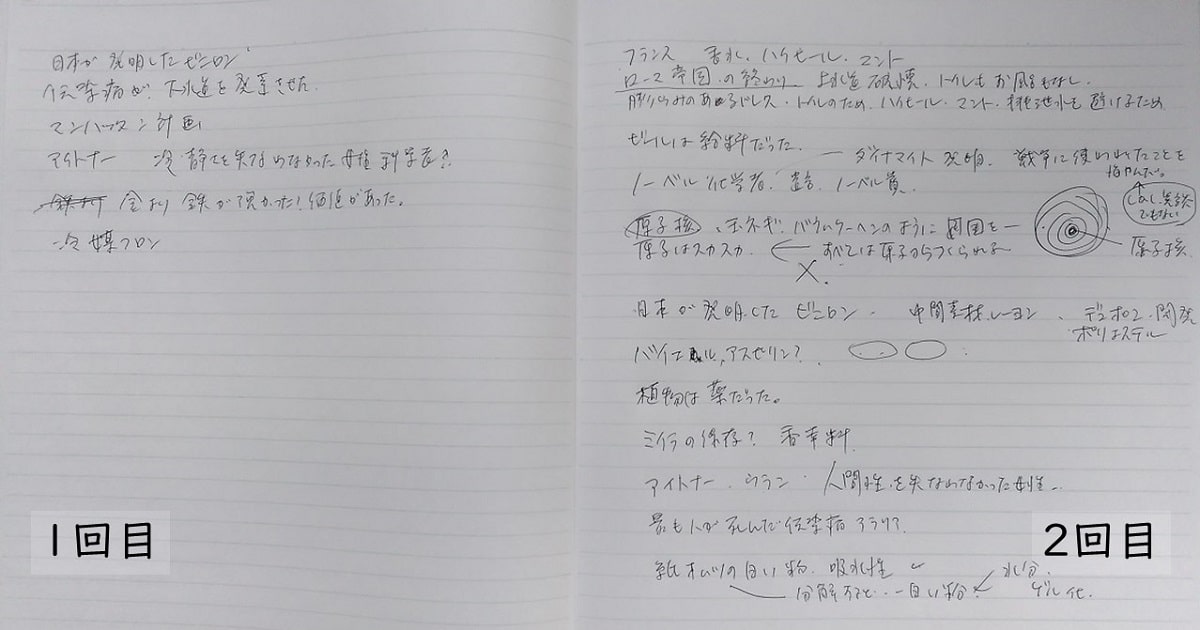 日本が発明したビニロン
伝染病が、下水道を発案させた
マンハッタン計画
マイトナー 冷静さを失なわなかった女性科学者?
金より鉄が強かった!価値があった。
冷媒フロン
1回目
フランス 香水、ハイヒール、マント
ローマ帝国の終わり 上水道破壊、トイレもお風呂もなし。
膨らみのあるドレス・トイレのため、ハイヒール、マント、排泄水を避けるため
ビールは給料だった。
ダイナマイト発明、戦争に使われたことを
悔やんだ。
ノーベル 化学者、遺言、ノーベル賞
しかし美談
でもない
原子核、玉ネギ、バウムクーヘンのように周囲を
原子はスカスカ ← すべては原子からつくられる
原子核
×
日本が発明したビニロン、中間素材レーヨン、デュポン開発
ポリエステル
バイエル、アスピリン?
植物は薬だった。
ミイラの保存? 香辛料
マイトナー、ウラン 人間性を失なわなかった女性
最も人が死んだ伝染病 マラリア?
紙オムツの白い粉、吸水性
分解すると 白い粉 ← 水分
ゲル化
2回目